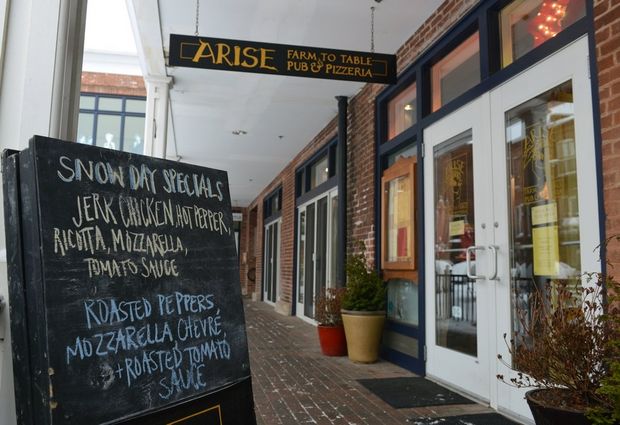 ARISE FARM TO TABLE
PUB & PIZZERIA
SNOW DAY SPECIALS
JERK CHICKEN, HOT PEPPER,
RICOTTA, MOZZARELLA,
TOMATO SAUCE
ROASTED PEPPERS
MOZZARELLA, CHEVRÉ
+ ROASTED TOMATO
SAUCE